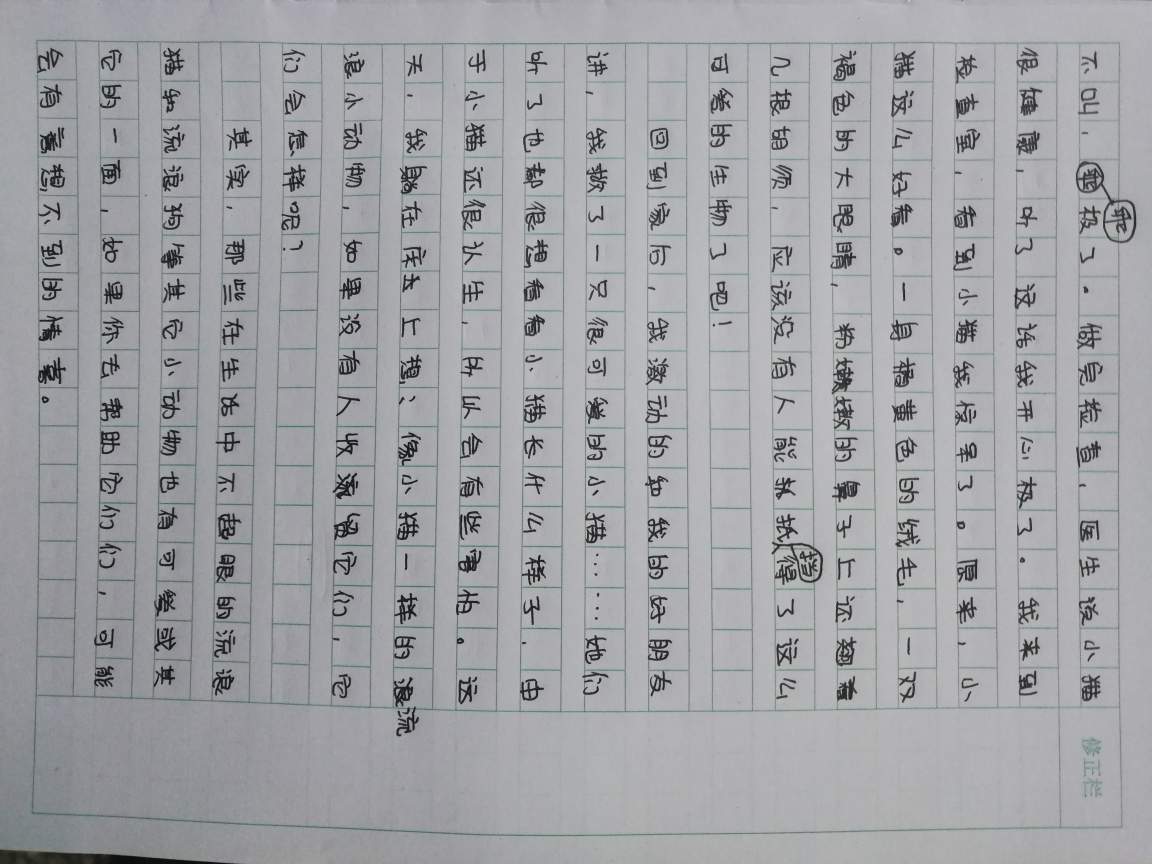 不叫，乖极了。做完检查，医生说小猫
乖
很健康，听了这话我开心极了。我来到
检查室，看到小猫我惊呆了。原来，小
猫这么好看。一身橘黄色的绒毛，一双
褐色的大眼睛，粉嫩嫩的鼻子上还翘着
几根胡须，应该没有人能抵得了这么
挡
可爱的生物了吧！
回到家后，我激动的和我的好朋友
讲，我救了一只很可爱的小猫……她们
听了也都很想看看小猫长什么样子，由
于小猫还很认生，所以会有些害怕。这
天，我躺在床上想：像小猫一样的流
浪小动物，如果没有人收留它们，它
们会怎样呢？
其实，那些在生活中不起眼的流浪
猫和流浪狗等其它小动物也有可爱或其
它的一面，如果你去帮助它们们，可能
会有意想不到的惊喜。
修正栏